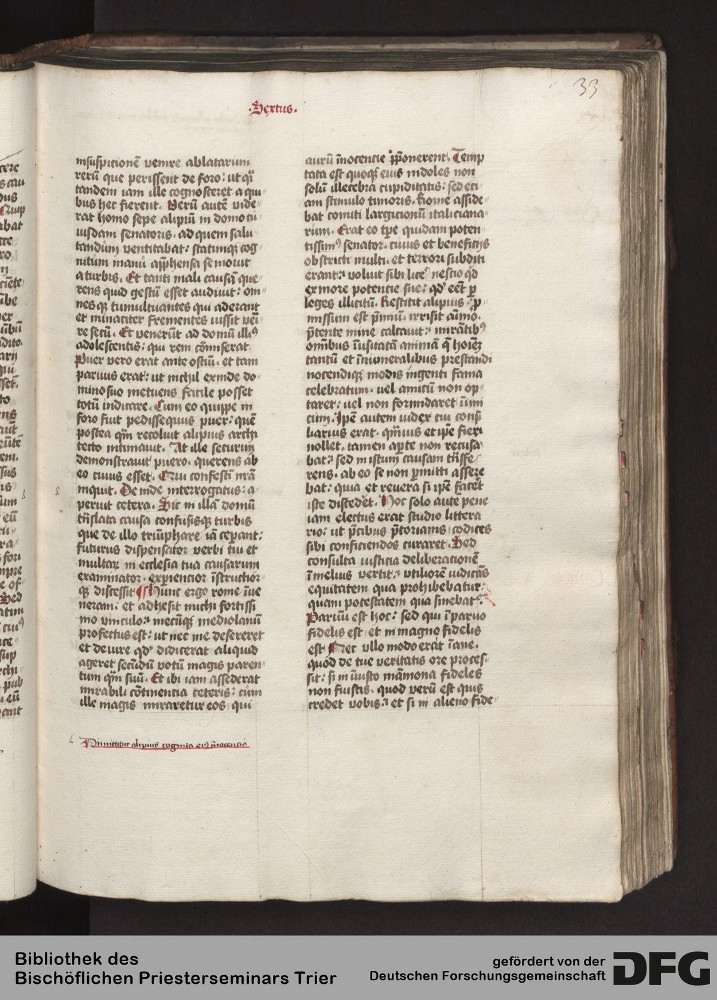 33
·Sextus·
insuspitionē venire ablatarum
rerū que perissent de foro: ut q̄
tandem iam ille cognosceret a qui
bus hec fierent. Verū autē vide
rat homo sepe alipiū in domo cu
iusdam senatoris. ad quem salu
tandum ventitabat: statimqꝫ cog
nitum manū app̄hensa semouit
a turbis. Et tanti mali causā que
rens quid gestū esset audiuit: om
nesqꝫ tumultuantes qui aderant
et minaciter frementes iussit veni
re secū. Et venerūt ad domū illiꝰ
adolescentis: qui rem cōmiserat
Puer vero erat ante ostiū. et tam
paruus erat: ut nichil exinde do
mino suo metuens facile posset
totū indicare. Cum eo quippe in
foro fuit pedissequus puer: quē
postea qm̄ recoluit alipius archi
tecto intimauit. At ille securim
demonstrauit puero. querens ab
eo cuius esset. Qui confestī nr̄a
inquit. Deinde interrogatus: a
peruit cetera. Sic in illā domū
trāslata causa confusisqꝫ turbis
que de illo triūphare iā ceperant:
futurus dispensator verbi tui et
multaꝝ in ecclesia tua causarum
examinator. experientior īstructior
qꝫ discessit Hunc ergo rome īue
neram. et adhesit michi fortissi
mo vinculo: mecūqꝫ mediolanū
profectus est: ut nec me desereret
et de iure qd̓ didicerat aliquid
ageret secūdū votū magis paren
tum qm̄ suū. Et ibi iam assederat
mirabili cōtinentia ceteris: cum
ille magis miraretur eos. qui
aurū īnocentie p̄ponerent. Temp
tata est quoqꝫ eius indoles non
solū illecebra cupiditatis: sed eti
am stimulo timoris. Rome asside
bat comiti largitionū italiciana
rum. Erat eo tp̄e quidam poten
tissimꝰ senator. cuius et beneficijs
obstricti multi. et terrori subditi
erant: voluit sibi licē nescio qd̓
ex more potencie sue: qd̓ eēt p
leges illicitū. Restitit alipius. p̄
missum est p̄miū. irrisit aīmo.
p̄tente mine calcauit: mirātibꝰ
omībus īusitatā animā q̄ hoīeꝫ
tantū et īnumeralibus prestandi
nocendiqꝫ modis ingenti fama
celebratum. vel amicū non op
taret: vel non formidaret īimi
cum. Ip̄e autem iudex cui consi
liarius erat. qm̄uis et ip̄e fieri
nollet. tamen apte non recusa
bat: sed in istum causam trāsfe
rens. ab eo se non pmitti assere
bat: quia et reuera si ip̄e faceret
iste discedet. Hoc solo autē pene
iam electus erat studio littera
rio: ut p̄cibus p̄torianis codices
sibi conficiendos curaret. Sed
consulta iusticia deliberationē
īmelius vertit: utiliorē iudicās
equitatem qua prohibebatur:
quam potestatem qua sinebatur
Paruū est hoc: sed qui ī paruo
fidelis est. et in magno fidelis
est Nec vllo modo erit īane.
quod de tue veritatis ore proces
sit: si in iniusto māmona fideles
non fuistis. quod verū est quis
credet vobis: et si in alieno fide
Bibliothek des
Bischöflichen Priesterseminars Trier
gefördert von der
Deutschen Forschungsgemeinschaft
DFG